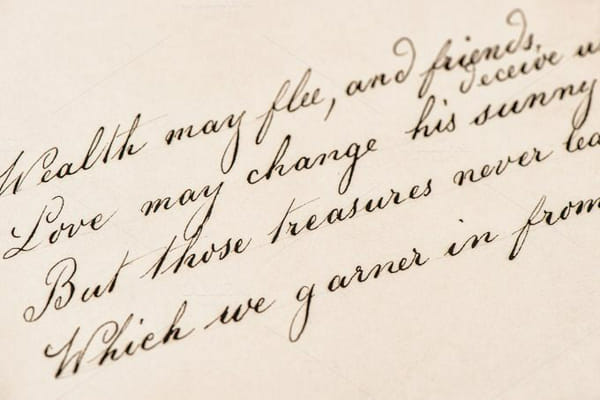 Wealth may flee, and friends,
deceive u
Love may change his sunny
But those treasures never lea
Which we garner in from